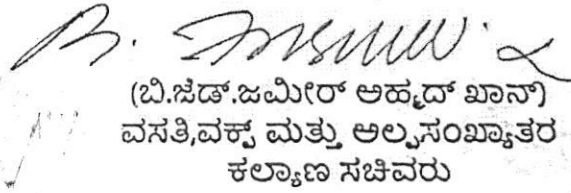 (ಬಿ.ಜೆಡ್.ಜಮೀರ್ ಅಹ್ಮದ್ ಖಾನ್)
ವಸತಿ,ವಕ್ಫ್ ಮತ್ತು ಅಲ್ಪಸಂಖ್ಯಾತರ
ಕಲ್ಯಾಣ ಸಚಿವರು